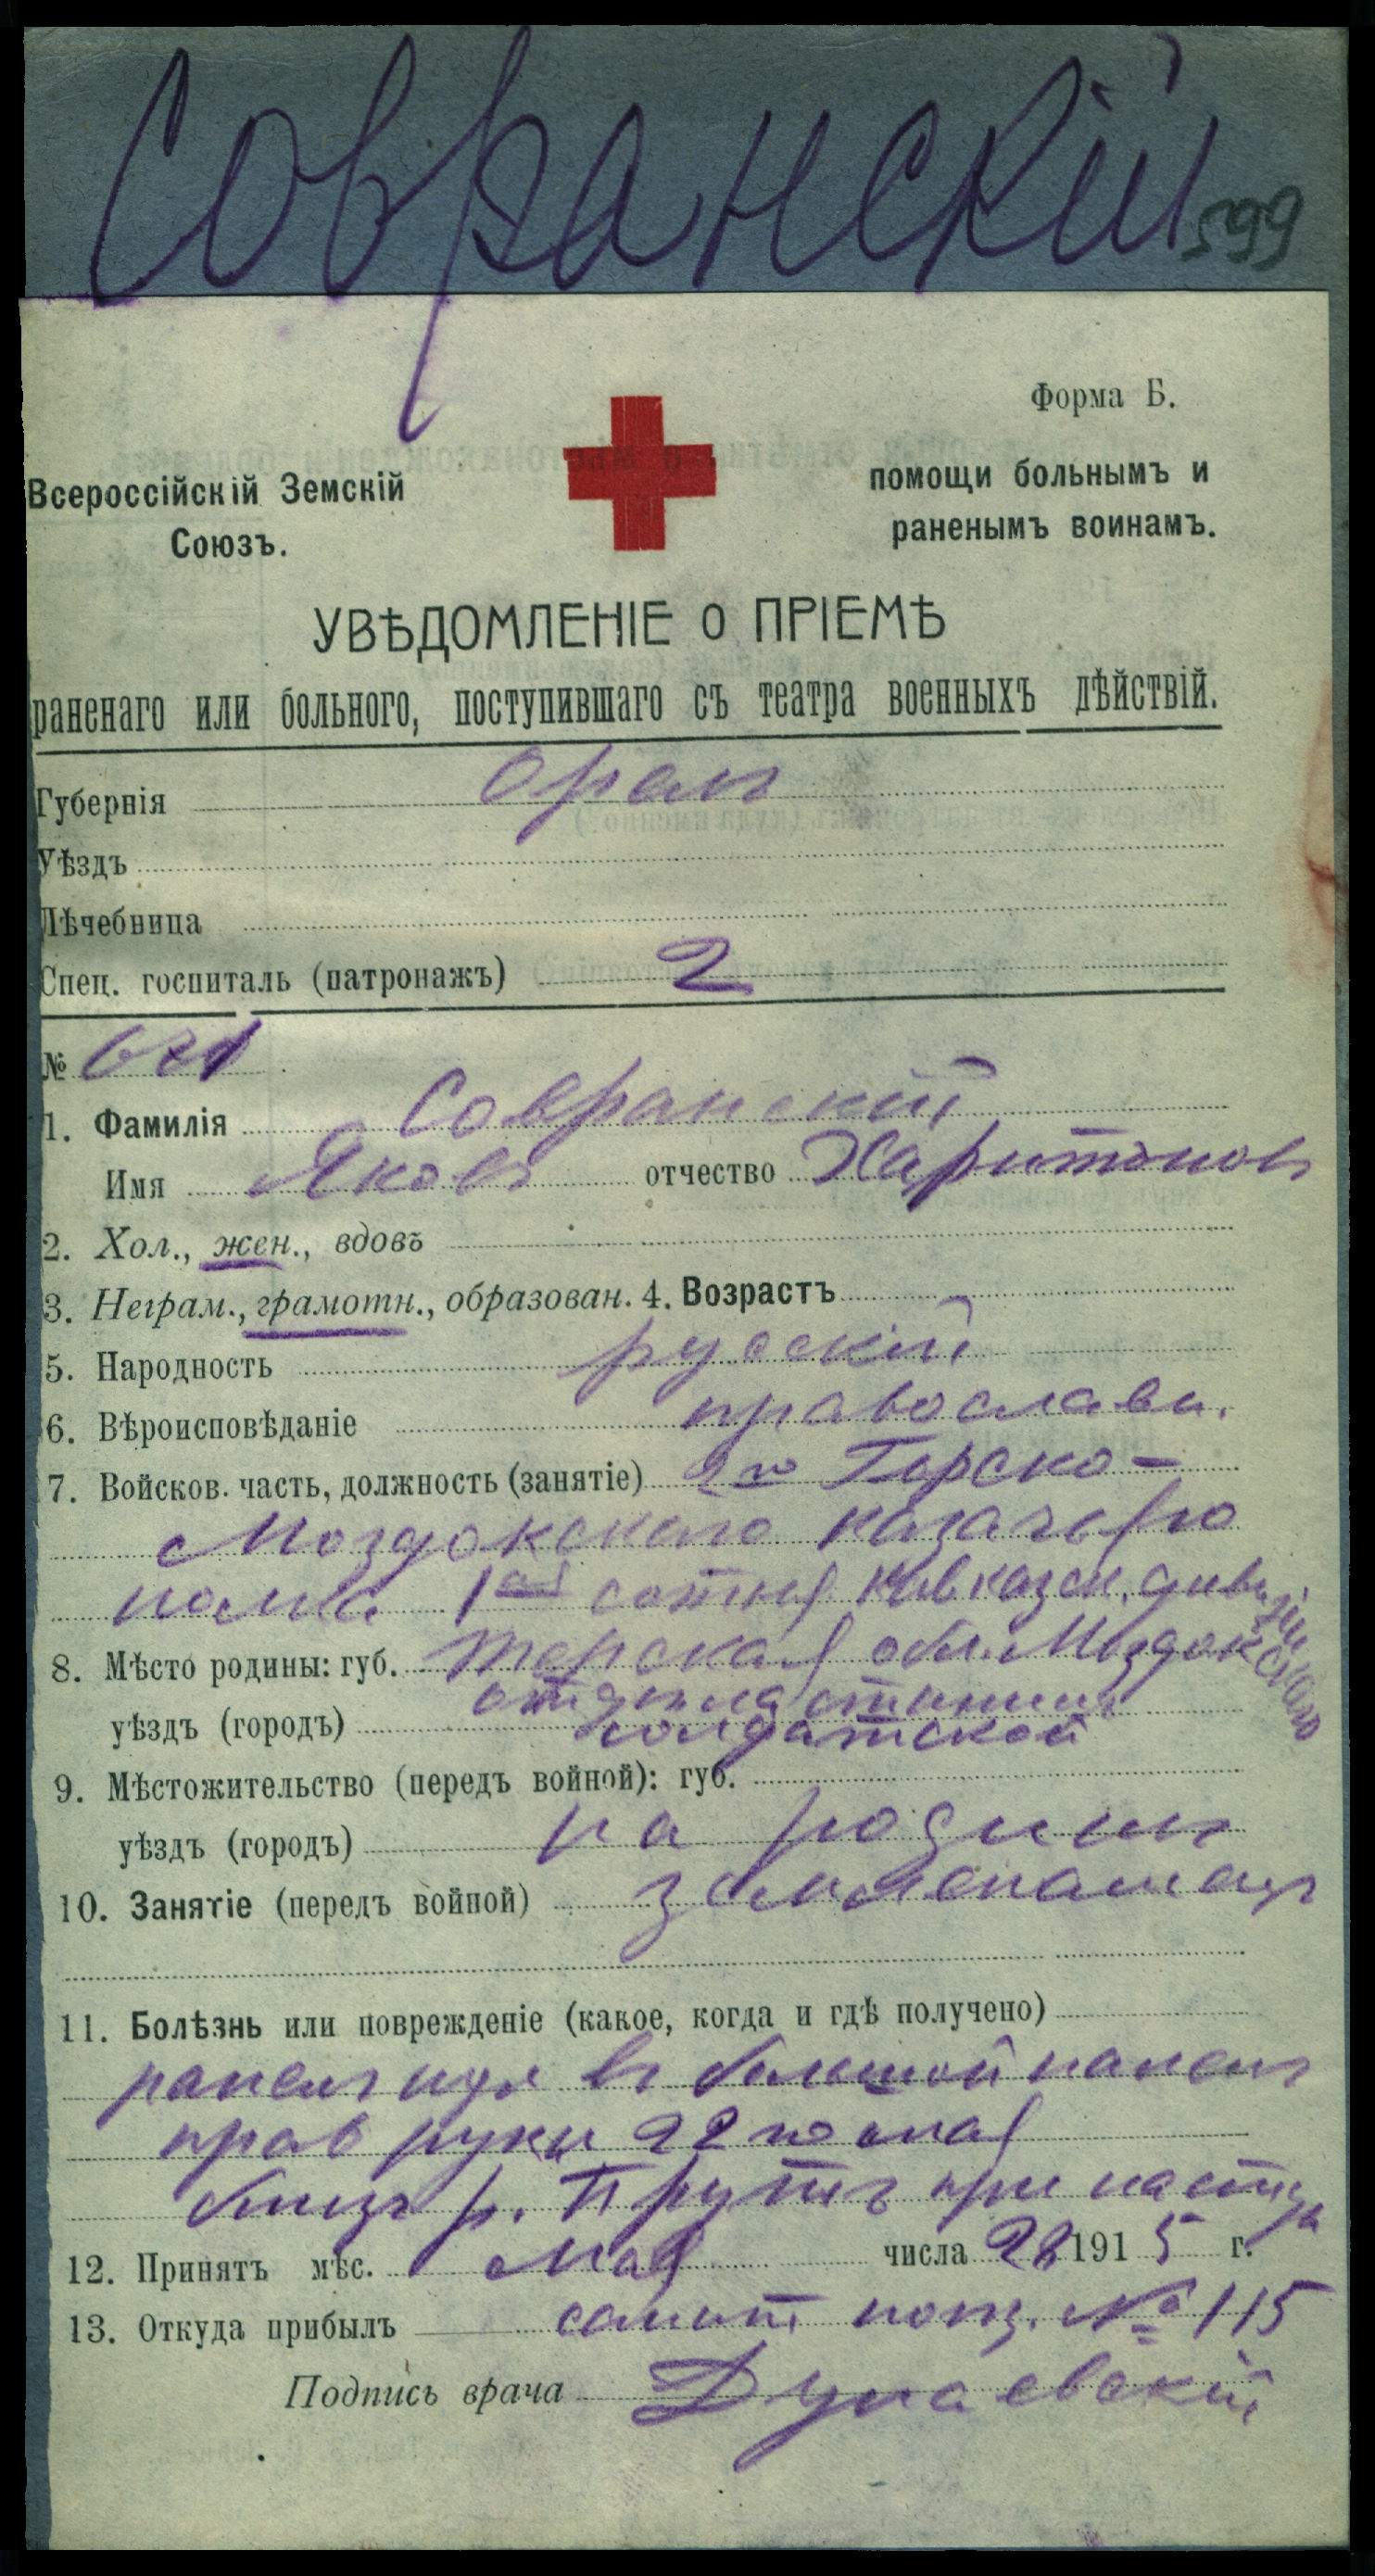 Совранскій
599
Форма Б.
Всероссійскій Земскій Союзъ.
помощи больнымъ и раненымъ воинамъ.
УВѢДОМЛЕНІЕ о ПРІЕМѢ
раненаго или больного, поступившаго съ театра военныхъ дѣйствій.
Губернія Орелъ
Уѣздъ
Лѣчебница
Спец. госпиталь (патронажъ) 2
№ 621
1. Фамилія Совранскій
Имя Яковъ отчество Харитоновъ
2. Хол., жен., вдовъ
3. Неграм., грамотн., образован. 4. Возрастъ
5. Народность русскій
6. Вѣроисповѣданіе православн.
7. Войсков. часть, должность (занятіе) 2го Горско-
Моздокскаго казачьяго
полка 1ая сотня Кавказск. дивизіи
8. Мѣсто родины: губ. Терская обл. Моздокскаго
уѣздъ (городъ) отдѣла станица
солдатской
9. Мѣстожительство (передъ войной): губ.
уѣздъ (городъ) на родинѣ
10. Занятіе (передъ войной) землепашецъ
11. Болѣзнь или поврежденіе (какое, когда и гдѣ получено)
раненъ пул въ большой палецъ
прав руки 22го мая
близъ р. Прутъ при наступл
12. Принятъ мѣс. Мая числа 28 1915 г.
13. Откуда прибылъ санит поѣз. № 115
Подпись врача Дунаевскій